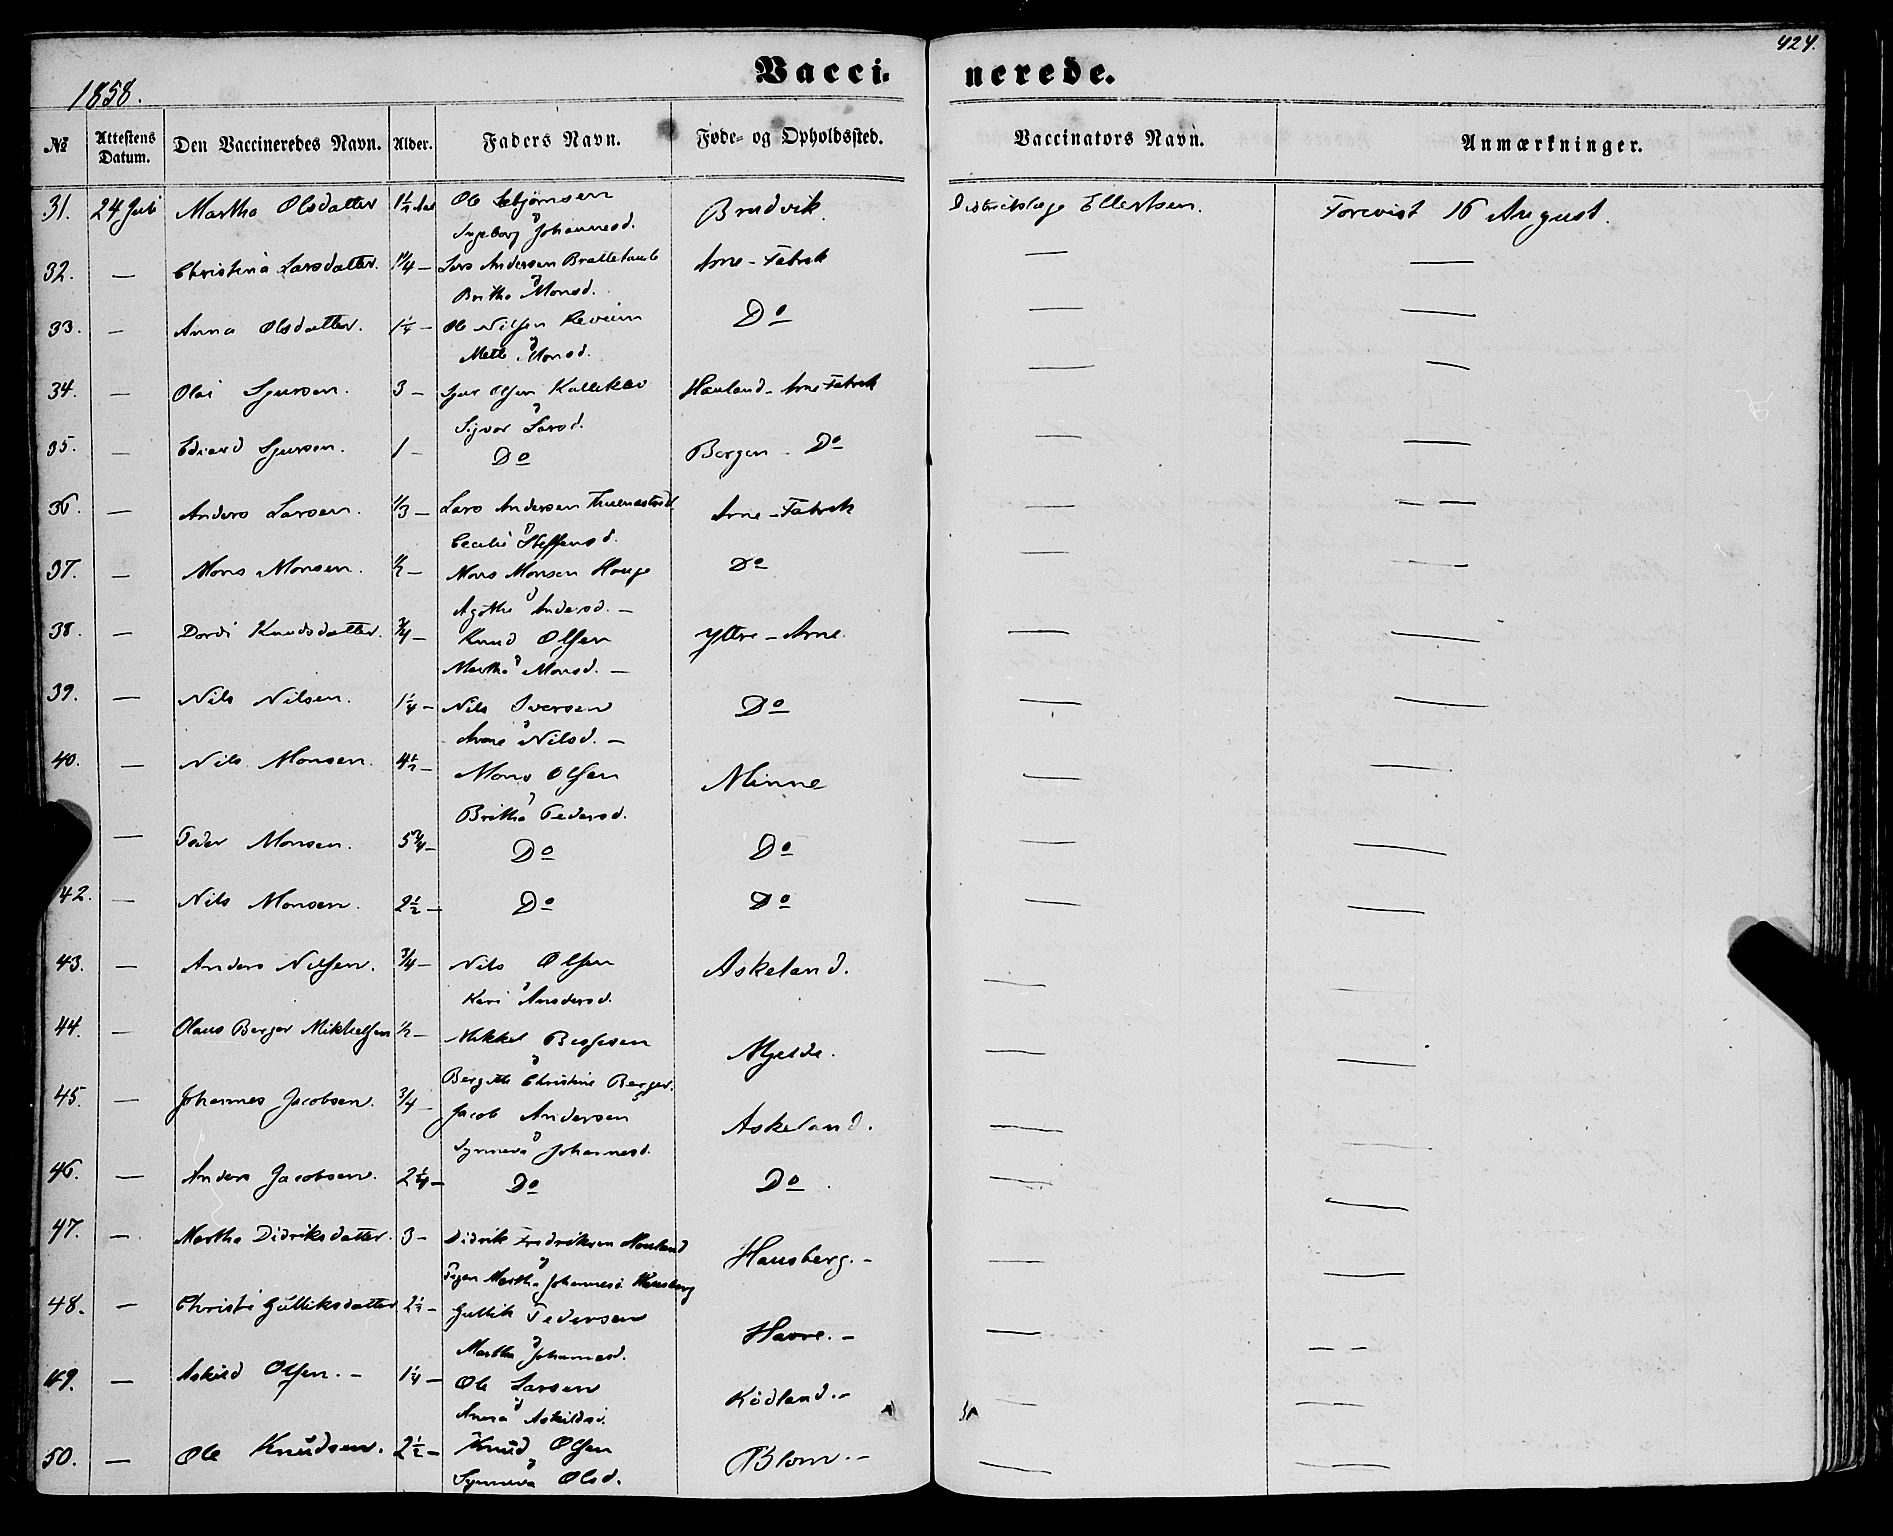 424.
Vaccinerede.
1858.
№ Attestens Datum. Den Vaccineredes Navn. Alder. Faders Navn. Føde- og Opholdssted. Vaccinators Navn. Anmærkninger.
31. 24 Juli Martha Olsdatter 1½ Ole Ingeborg Johannesd. Bruvik Ellertsen. Forevist 16 August.
32. — Christina Larsdatter. 1/4 — Lars Andersen Brattetaule Arne-Fabrik — —
Britha Monsd.
33. — Anna Olsdatter. 1¼ — Ole Nilsen Do — —
Mette Monsd.
34. — Olai Sjursen. 3 — Sjur Olsen Kalleklev Hauland - Arne Fabrik — —
Sigvor Larsd.
35. — Edvard Sjursen. 1 — Do Bergen - Do — —
36. — Anders Larsen. 1/3 — Lars Andersen Arne-Fabrik — — —
Cecilie Steffensd.
37. — Mons Monsen. ½ — Mons Monsen Houge Do — —
Agathe Andersd. —
38. — Dordi Knudsdatter. ¾ — Knud Olsen Yttre-Arne. — —
Martha Monsd. —
39. — Nils Nilsen. 1¼ — Nils Iversen Do — —
Anne Nilsd. —
40. — Nils Monsen. 4½ — Mons Olsen Minne — —
Britha Pedersd.
— Peder Monsen. 5¾ — Do Do — —
42. — Nils Monsen. 2½ — Do Do — —
43. — Anders Nilsen. ¾ — Nils Olsen Askeland. — —
Kari Andersd.
44. — Olaus Berger Mikkelsen ½ — Mikkel Mjelde. — —
Bergitte Christine Berger.
45. — Johannes Jacobsen. ¾ — Jacob Andersen Askeland. — —
Synneva Johannesd.
46. — Anders Jacobsen. 2¼ — Do Do — —
47. — Martha Didriksdatter. 3 — Didrik Fredriksen Hauland Hausberg. — — —
Pigen Martha Johannesd. Hausberg
48. — Christi Gulliksdatter 2½ — Gullik Pedersen Havre. — — — —
Martha Johannesd.
49. — Askild Olsen. — 1¼ — Ole Larsen Ködland. — — —
Anna Askildsd.
50. — Ole Knudsen. 2½ — Knud Olsen Blom. — — —
Synneva Olsd.